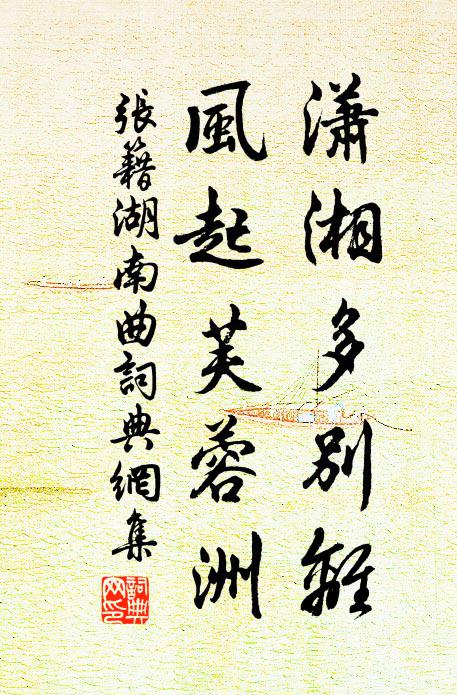 瀟湘多別離
風起芙蓉洲
張籍湖南曲詞典網集
詞典
网印